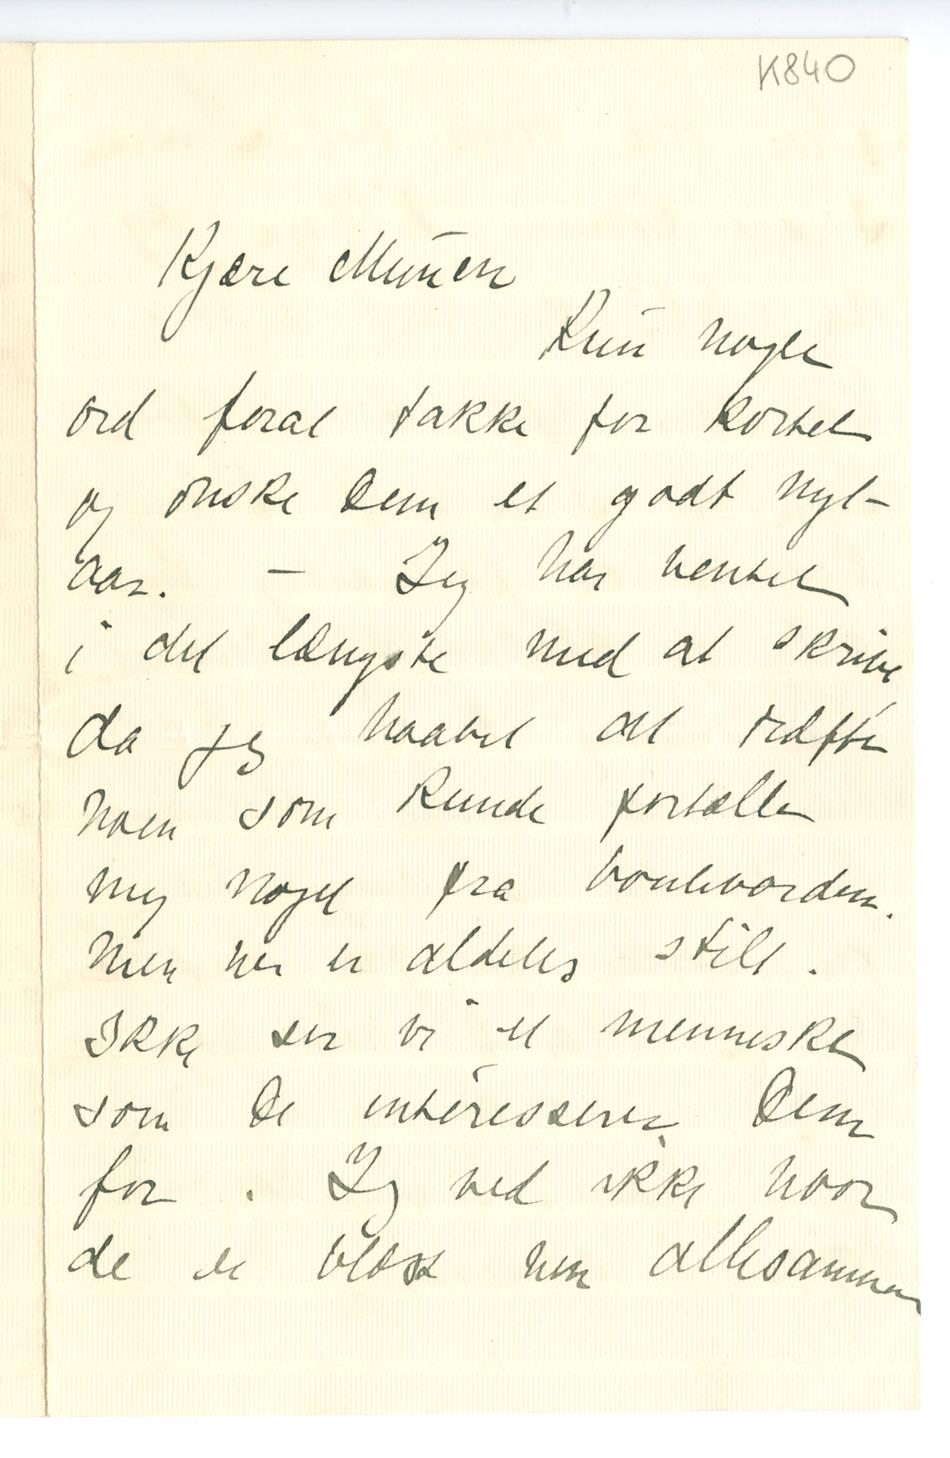 K840
Kjære Munch
Kun nogle
ord foral takke for kortet
og ønske Dem et godt nyt-
aar. – Jeg har ventet
i det længste med at skrive
da jeg haabet at træffe
noen som kunde fortælle
mig noget fra boulevarden.
Men her er aldeles stilt.
Ikke ser vi et menneske
som De interesserer Dem
for. Jeg ved ikke hvor
de er blæst hen allesammen